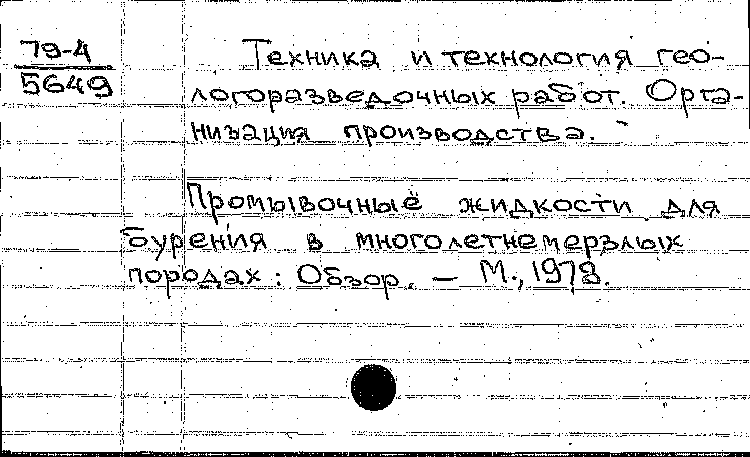 79-4
5649
Техника и технология гео-
логоразведочных работ. Орга-
низация производства.
Промывочные жидкости для
бурения в многолетнемерзлых
породах: Обзор. — М., 1978.